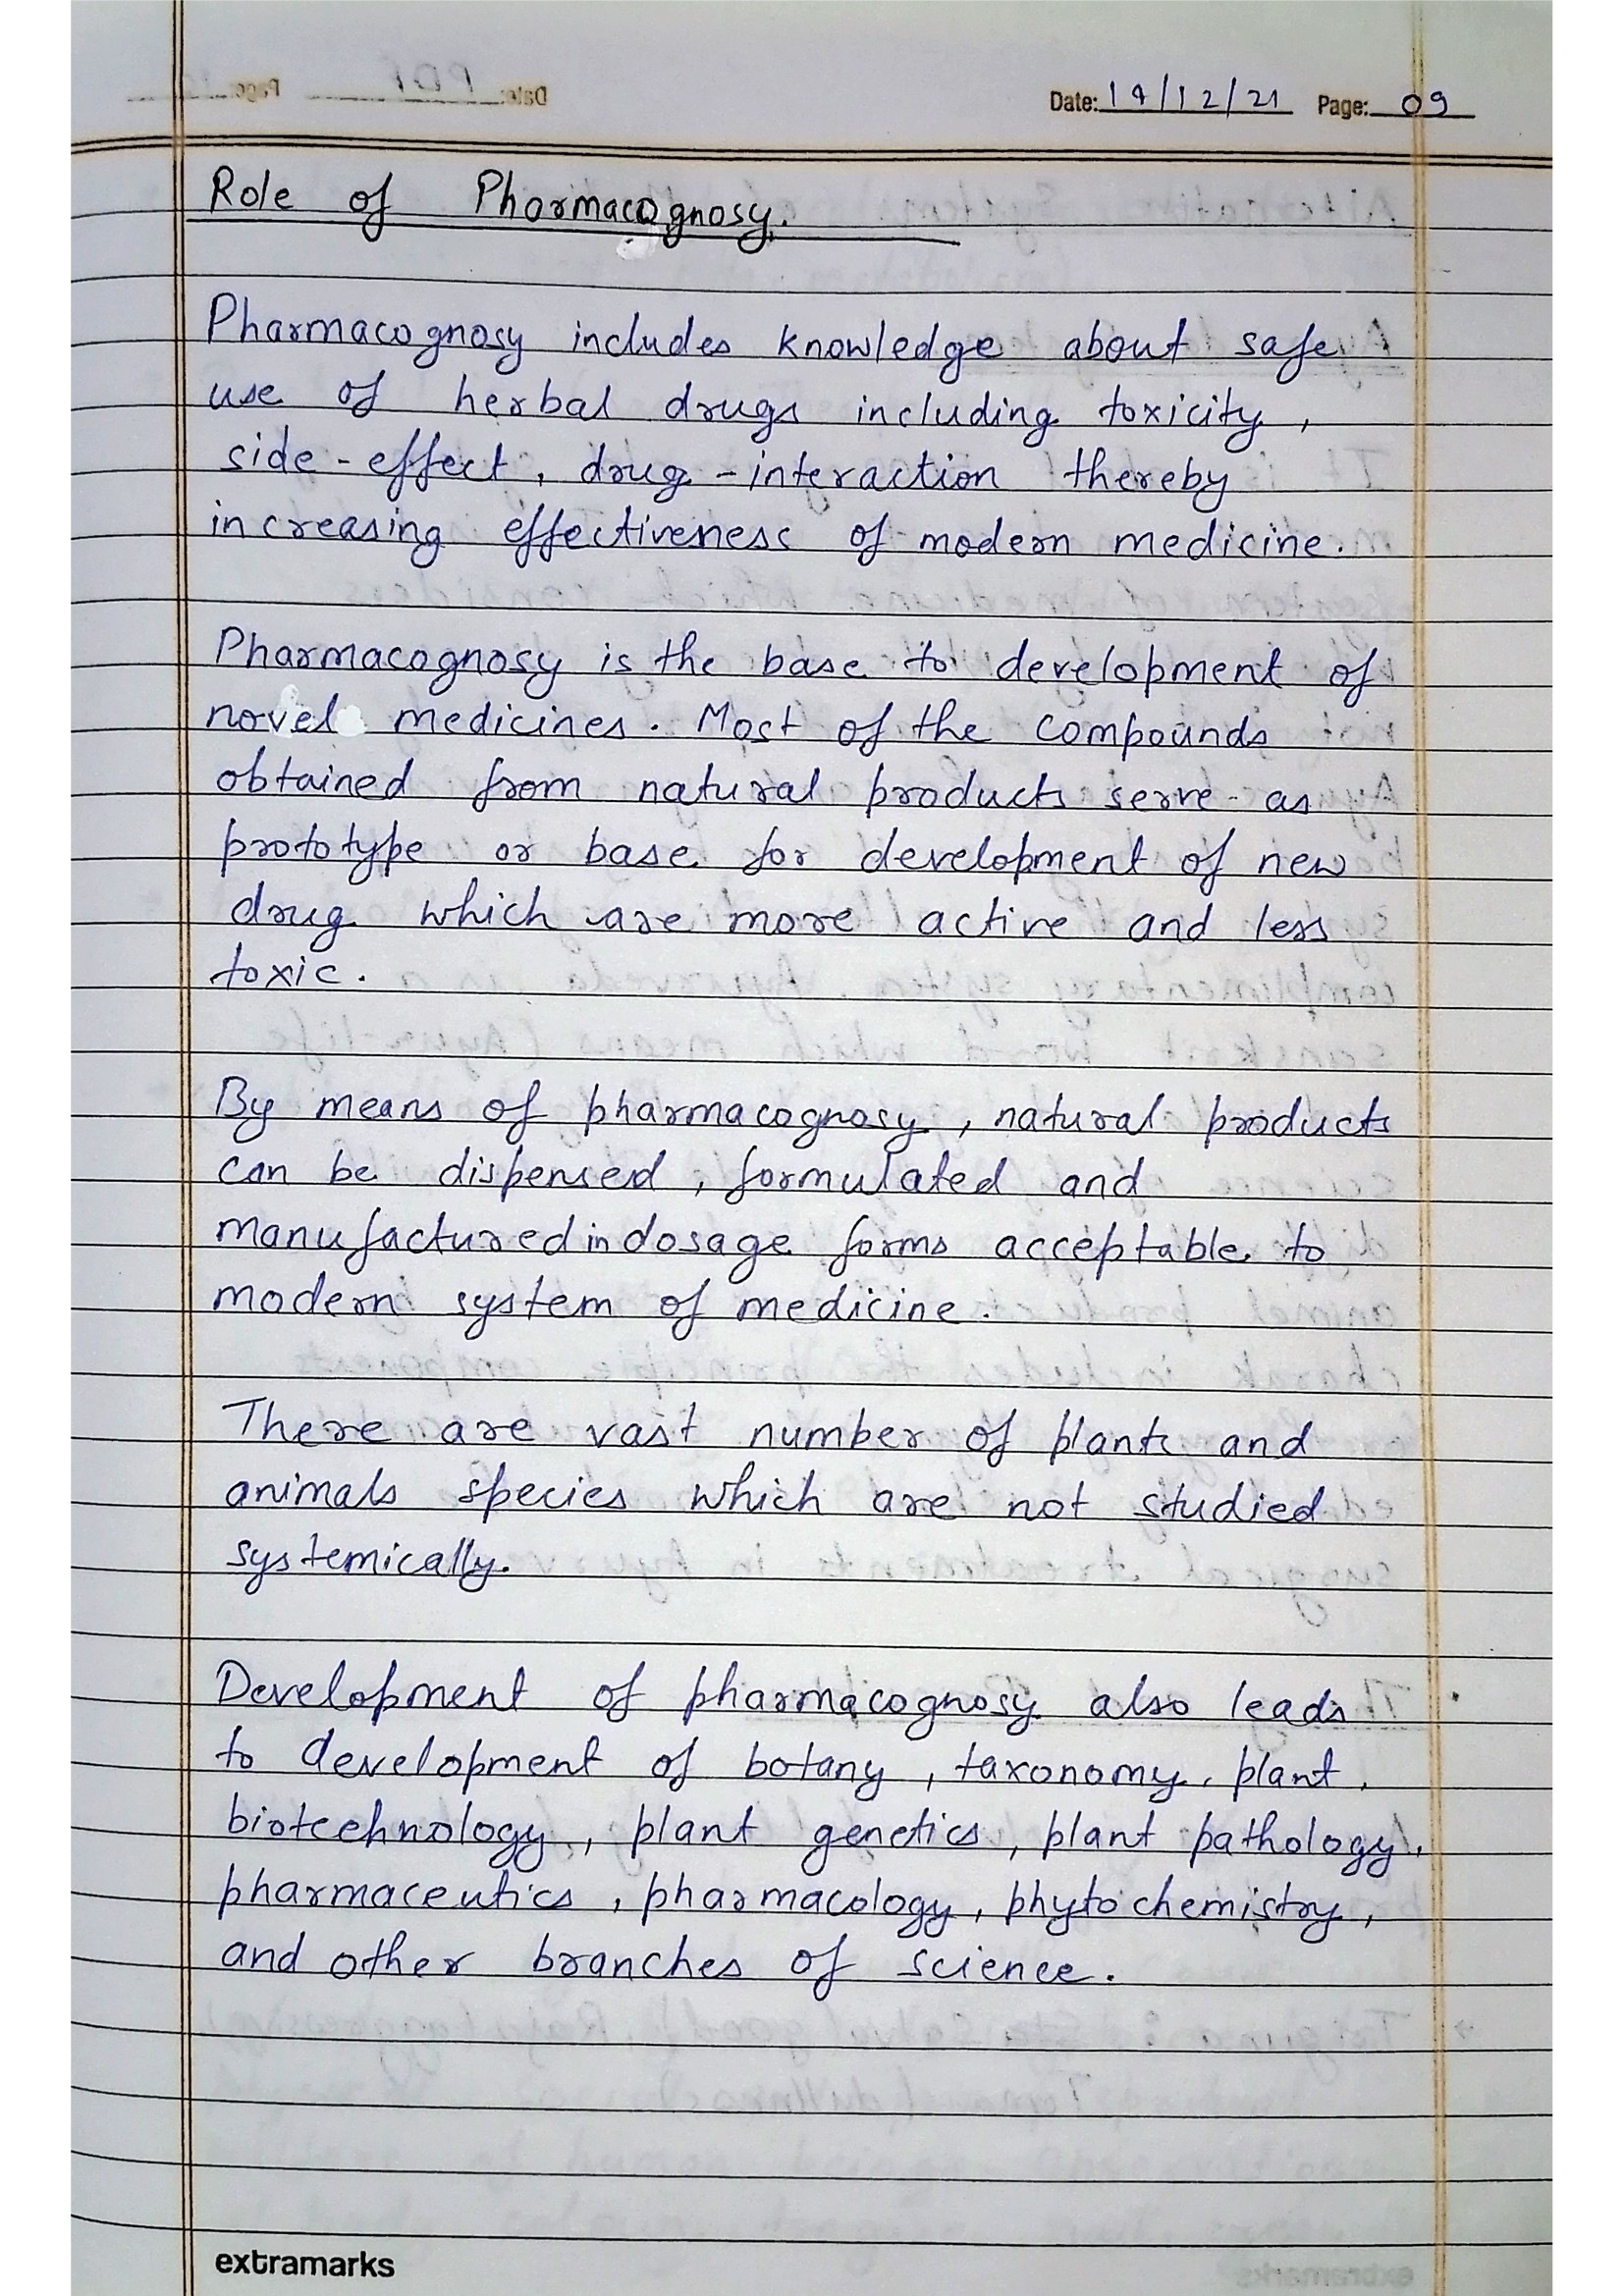 Date: 14/12/21 Page: 09
Role of Pharmacognosy.
Pharmacognosy includes knowledge about safe
use of herbal drugs including toxicity,
side-effect, drug-interaction thereby
increasing effectiveness of modern medicine.
Pharmacognosy is the base to development of
novel medicines. Most of the compounds
obtained from natural products serve as
prototype or base for development of new
drug which are more active and less
toxic.
By means of pharmacognosy, natural products
can be dispensed, formulated and
manufactured in dosage forms acceptable to
modern system of medicine.
There are vast number of plants and
animals species which are not studied
systemically.
Development of pharmacognosy also leads
to development of botany, taxonomy, plant
biotechnology, plant genetics, plant pathology,
pharmaceutics, pharmacology, phytochemistry,
and other branches of science.
extramarks